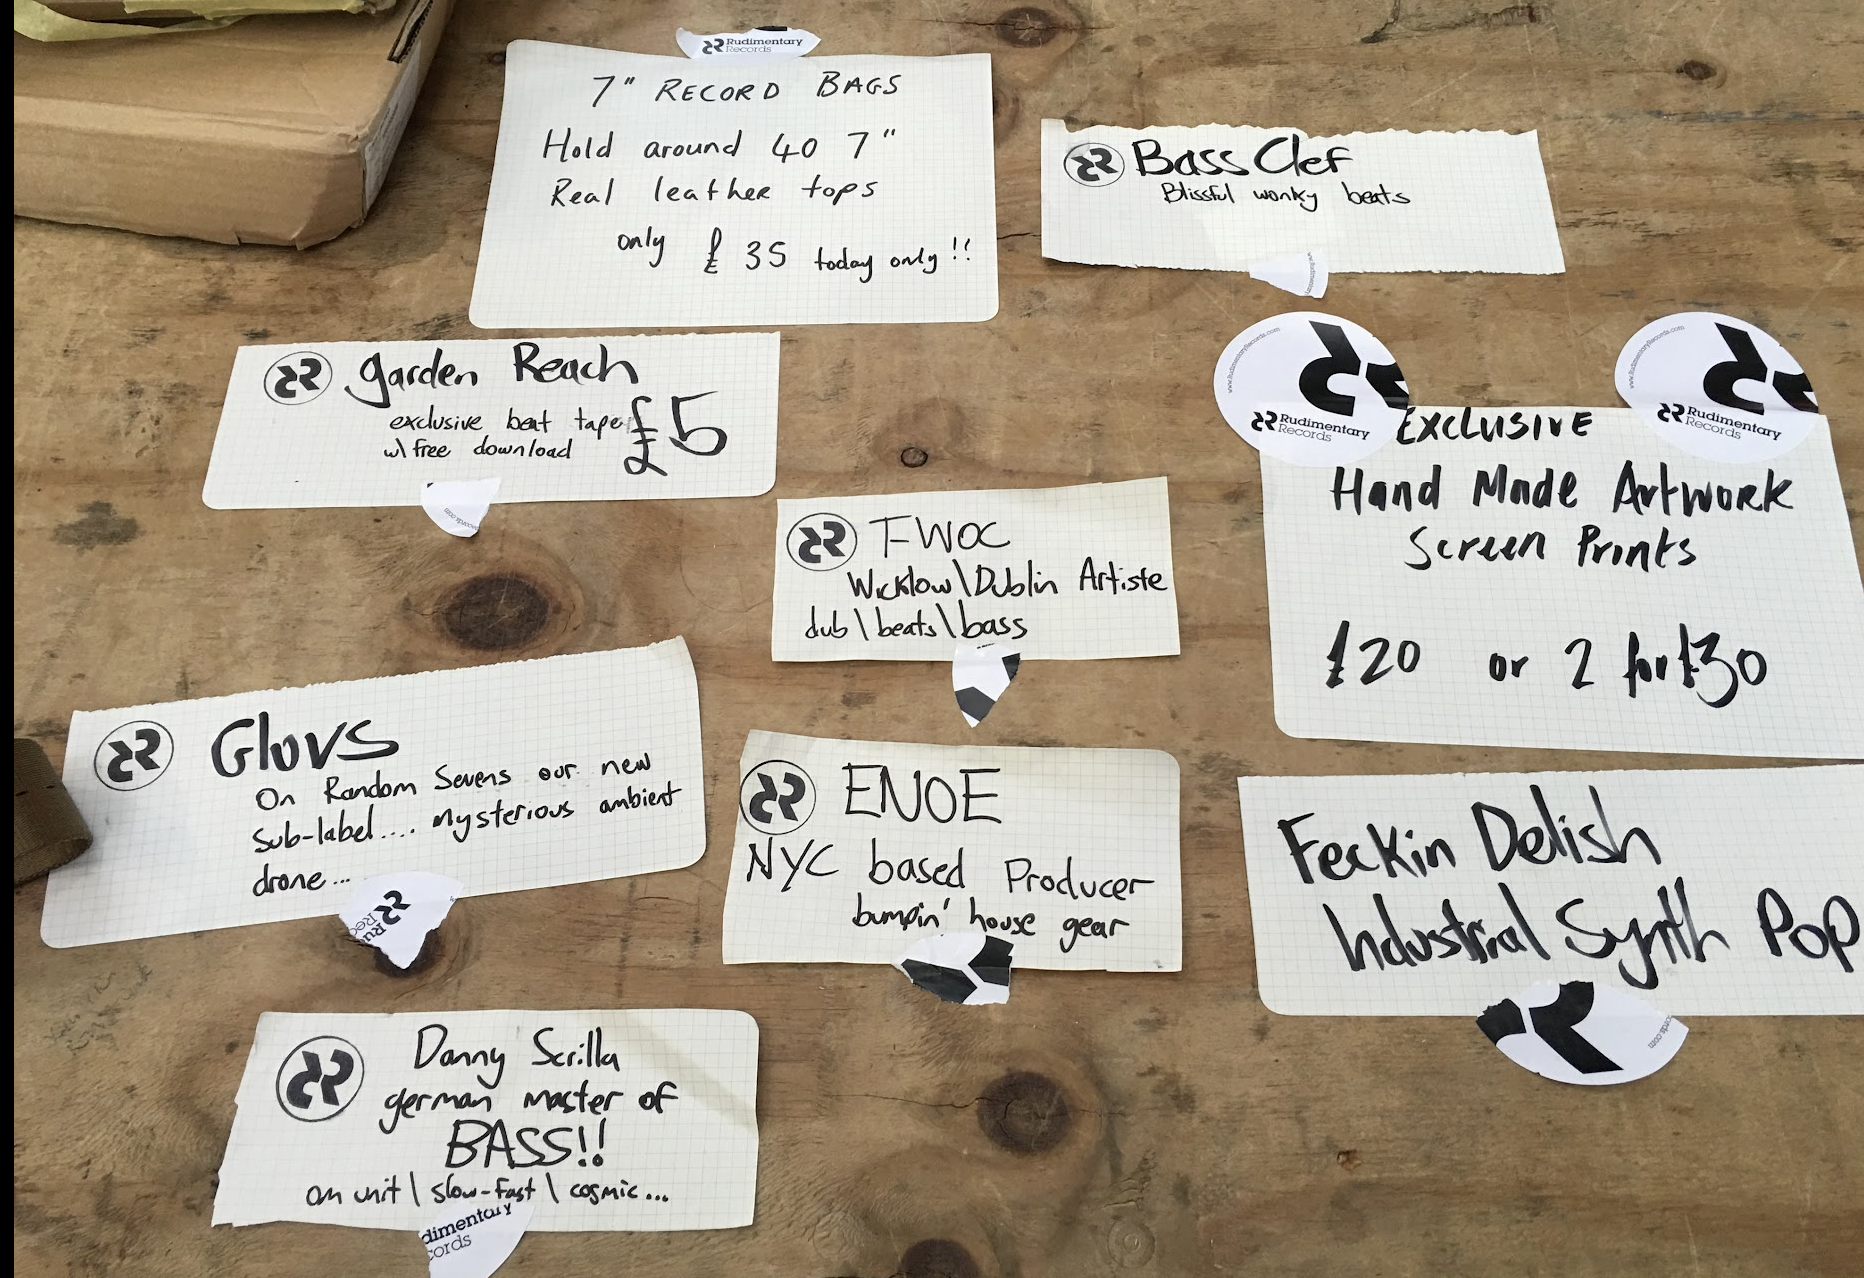 Rudimentary
Records
7" RECORD BAGS
Hold around 40 7"
Real leather tops
only £35 today only!!
Bass Clef
Blissful wonky beats
garden Reach
exclusive beat tape £5
w\ free download
www.RudimentaryRecords.com
Rudimentary
Records
www.RudimentaryRecords.com
Rudimentary
Records
EXCLUSIVE
Hand Made Artwork
Screen Prints
£20 or 2 for £30
T-WOC
Wicklow\Dublin Artiste
dub\beats\bass
Glovs
On Random Sevens our new
sub-label.... mysterious ambient
drone...
Ru
Rec
ENOE
NYC based Producer
bumpin' house gear
Feckin Delish
Industrial Synth Pop
cords.com
Danny Scrilla
german master of
BASS!!
om unit\ slow-fast \ cosmic...
dimentary
cords